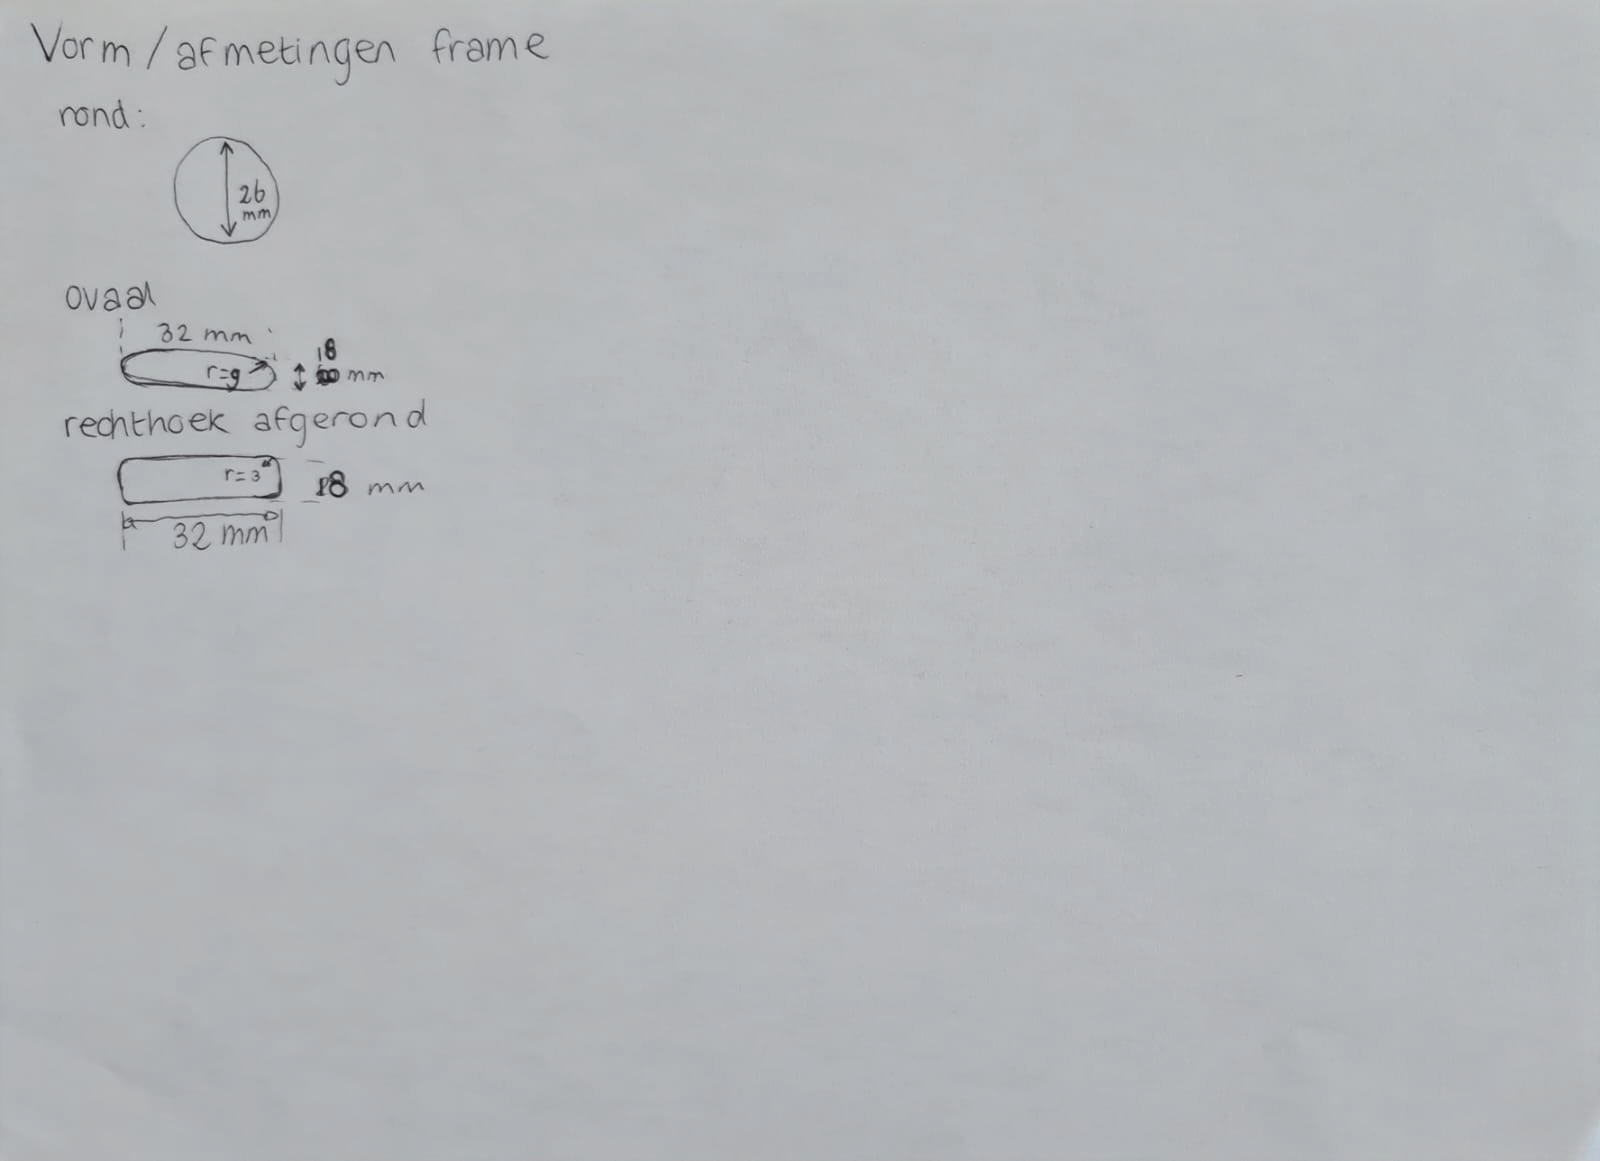 Vorm / afmetingen frame
rond:
26
mm
ovaal
32 mm
18
r=9
mm
rechthoek afgerond
r=3
18 mm
32 mm